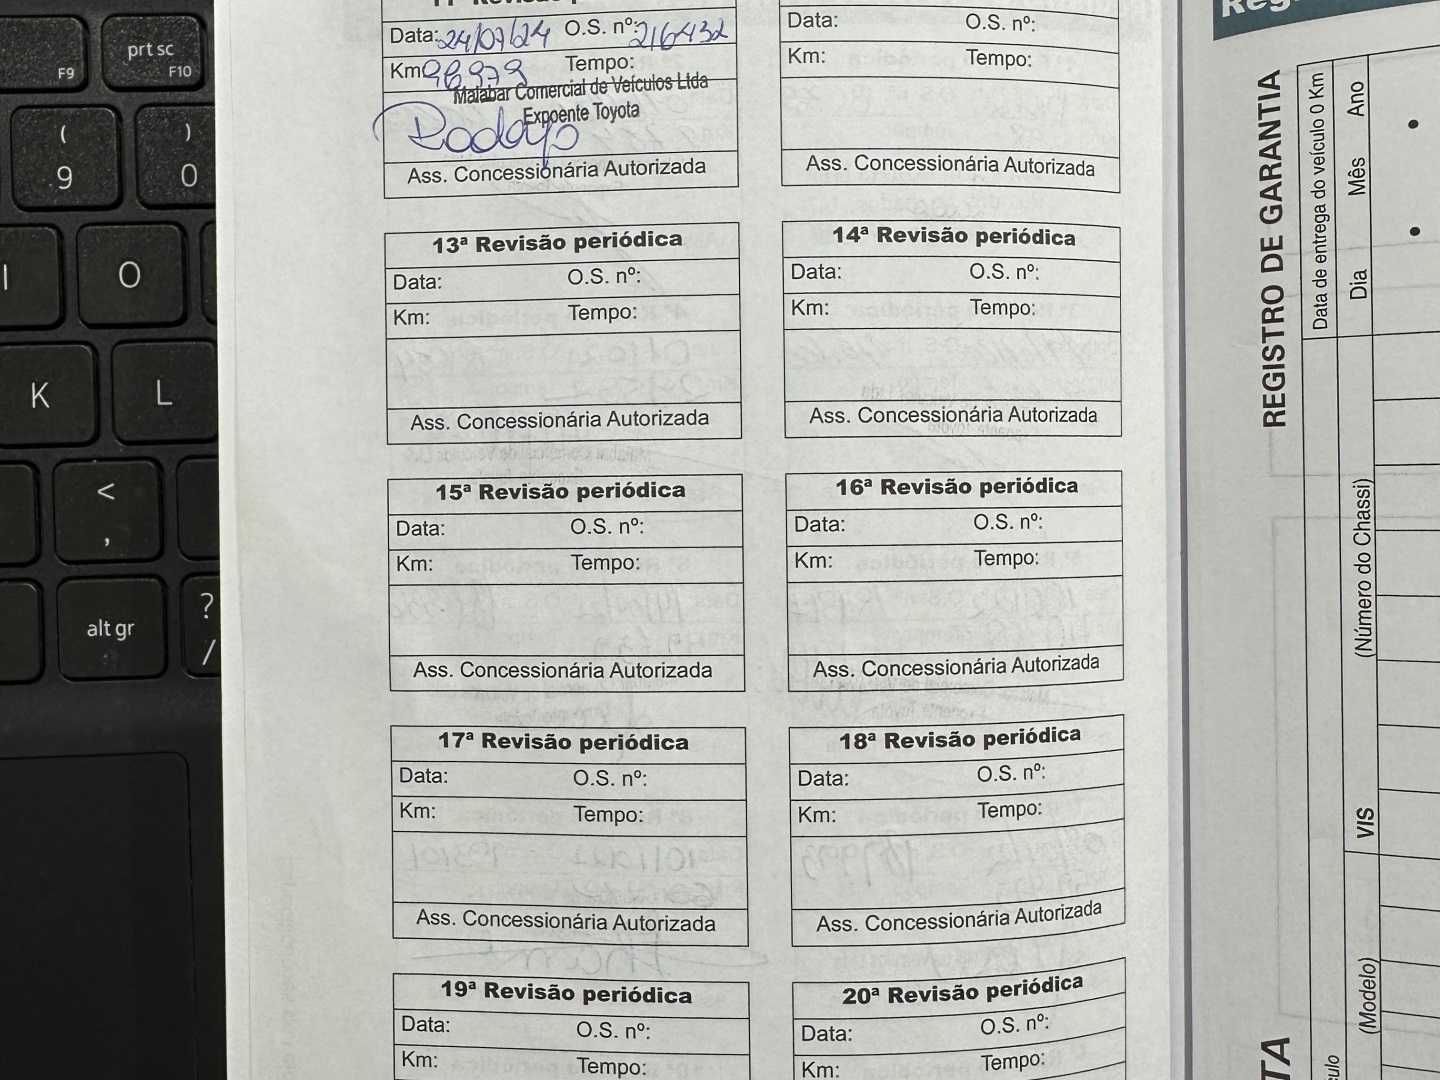 11ª Revisão
Data: 24/07/24 O.S. nº: 216432
Km 98979 Tempo:
Malabar Comercial de Veículos Ltda
Expoente Toyota
Rodolfo
Ass. Concessionária Autorizada
Data: O.S. nº:
Km: Tempo:
Ass. Concessionária Autorizada
13ª Revisão periódica
Data: O.S. nº:
Km: Tempo:
Ass. Concessionária Autorizada
14ª Revisão periódica
Data: O.S. nº:
Km: Tempo:
Ass. Concessionária Autorizada
15ª Revisão periódica
Data: O.S. nº:
Km: Tempo:
Ass. Concessionária Autorizada
16ª Revisão periódica
Data: O.S. nº:
Km: Tempo:
Ass. Concessionária Autorizada
17ª Revisão periódica
Data: O.S. nº:
Km: Tempo:
Ass. Concessionária Autorizada
18ª Revisão periódica
Data: O.S. nº:
Km: Tempo:
Ass. Concessionária Autorizada
19ª Revisão periódica
Data: O.S. nº:
Km: Tempo:
20ª Revisão periódica
Data: O.S. nº:
Km: Tempo:
REGISTRO DE GARANTIA
Data de entrega do veículo 0 Km
Dia Mês Ano
(Modelo) VIS (Número do Chassi)
F9
prt sc
F10
(
9
)
0
I
O
K
L
<
,
alt gr
?
/